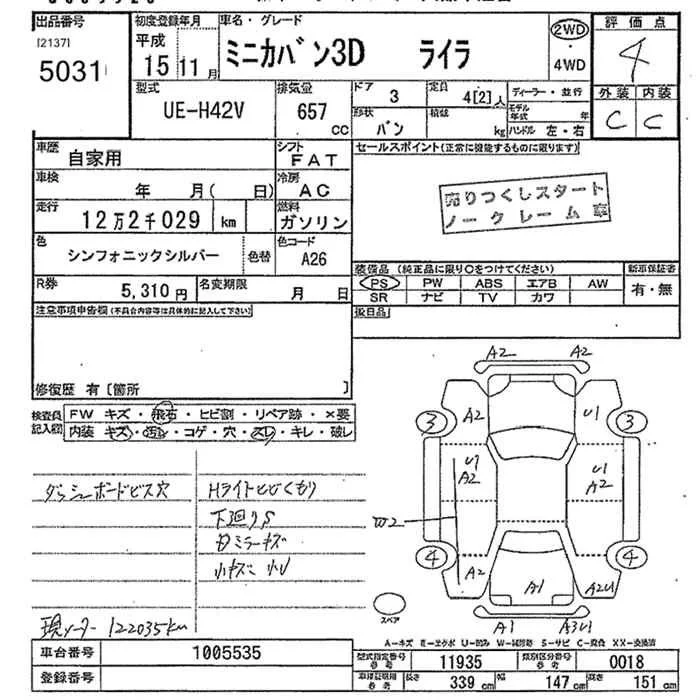 出品番号 初度登録年月 車名・グレード 評価点
[2137] 平成 ミニカバン3D ライラ 2WD 4
5031 15年 11月 ・ 4WD
型式 排気量 ドア 3 定員 4[2]人 ディーラー・並行 外装 内装
UE-H42V 657 cc 形状 バン 積載 kg モデル年式 年 ハンドル 左・右 C C
車歴 自家用 シフト FAT セールスポイント(正常に機能するものに限ります)
車検 年 月( 日) 冷房 AC 売りつくしスタート
走行 12万2千029 km 燃料 ガソリン ノークレーム車
色 シンフォニックシルバー 色替 色コード A26
装備品 (純正品に限り○をつけてください) 新車保証書
R券 5,310円 名変期限 月 日 PS PW ABS エアB AW 有・無
SR ナビ TV カワ
注意事項申告欄(不具合内容等は具体的に記入して下さい) 後日品
修復歴 有〔箇所 〕
検査員記入欄 FW キズ・飛石・ヒビ割・リペア跡・×要
内装 キズ・汚れ・コゲ・穴・スレ・キレ・破レ
ダッシュボードビス穴 Hライトヒビくもり
下廻りS
ミラーキズ
小キズ 小U
現メーター 122035km
A2 A2
3 A2 U1 3
U1 A2 U1 A2
W2
4 A2 A1 A2U1 4
スペア A1 A3U1
A-キズ E-エクボ U-凹み W-補修跡 S-サビ C-腐食 XX-交換済
車台番号 1005535 型式指定番号 参考 11935 類別区分番号 参考 0018
登録番号 車検証数用 参考 長さ 339 cm 幅 147 cm 高さ 151 cm